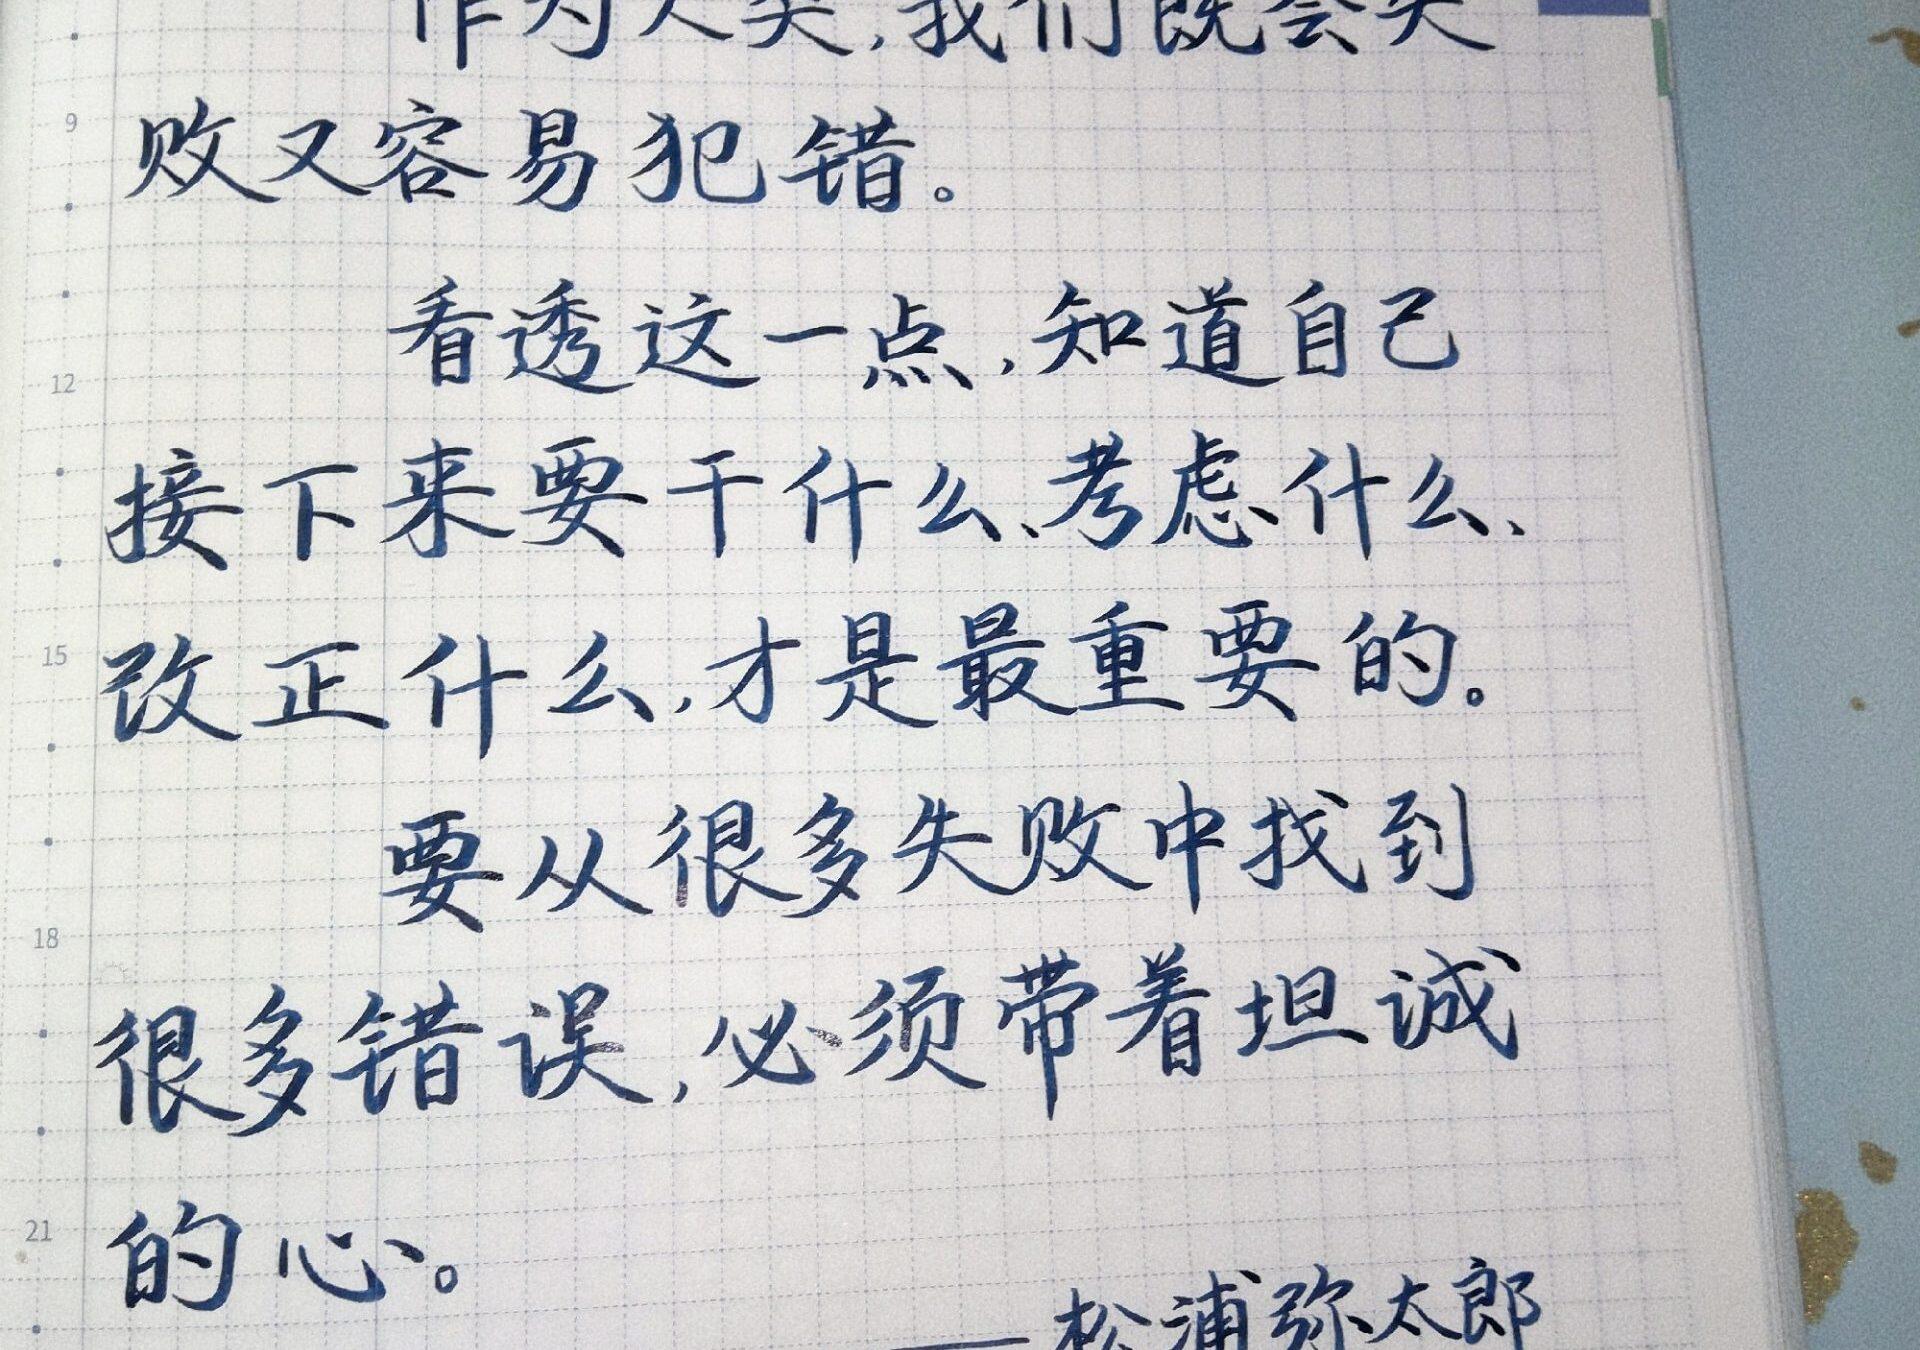 作为人类，我们既会失
9
败又容易犯错。
看透这一点，知道自己
12
接下来要干什么、考虑什么、
15
改正什么，才是最重要的。
要从很多失败中找到
18
很多错误，必须带着坦诚
21
的心。
——松浦弥太郎